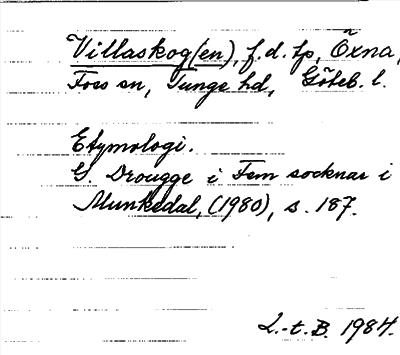 Villaskog(en), f.d. tp, Öxna,
Foss sn, Tunge hd, Göteb. l.
Etymologi.
G. Drougge i Fem socknar i
Munkedal, (1980), s. 187.
L.-t. B. 1984.